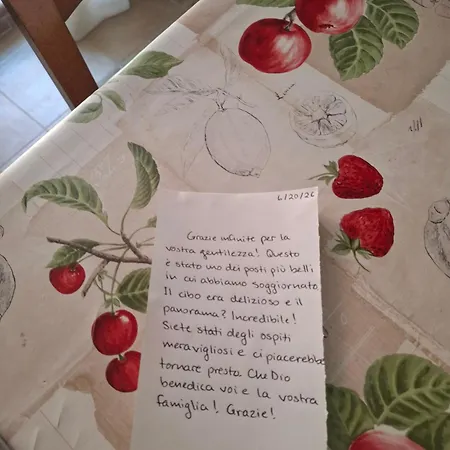 6/20/26
Grazie infinite per la
vostra gentilezza! Questo
è stato uno dei posti più belli
in cui abbiamo soggiornato
Il cibo era delizioso e il
panorama? Incredibile!
Siete stati degli ospiti
meravigliosi e ci piacerebbe
tornare presto Che Dio
benedica voi e la vostra
famiglia! Grazie!